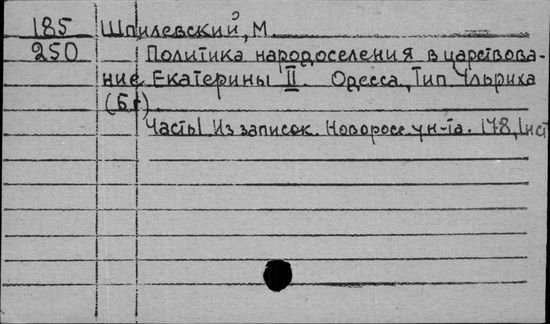 185 Шпилевский, М
250 Политика народоселения в царствова-
ние Екатерины II. Одесса, Тип Ульриха
(б г).
Часть I Из записок. Новоросс. ун-та. 178, I нст